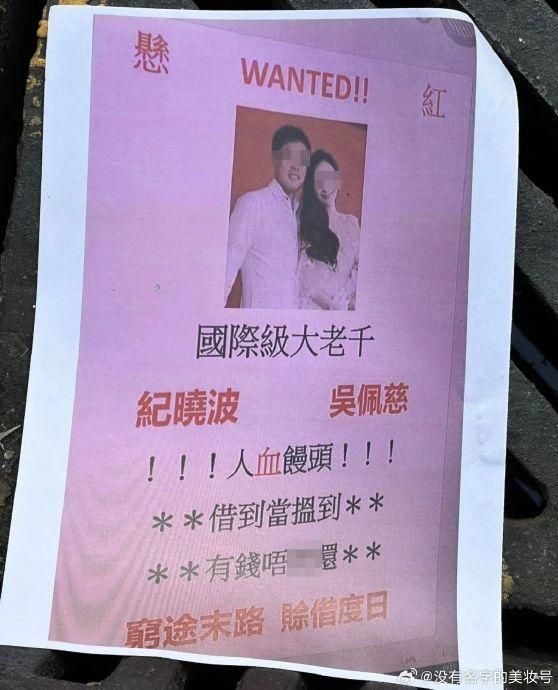 懸 WANTED!! 紅
國際級大老千
紀曉波 吳佩慈
！！！人血饅頭！！！
＊＊借到當搵到＊＊
＊＊有錢唔 還＊＊
窮途末路 賒借度日
@没有名字的美妆号